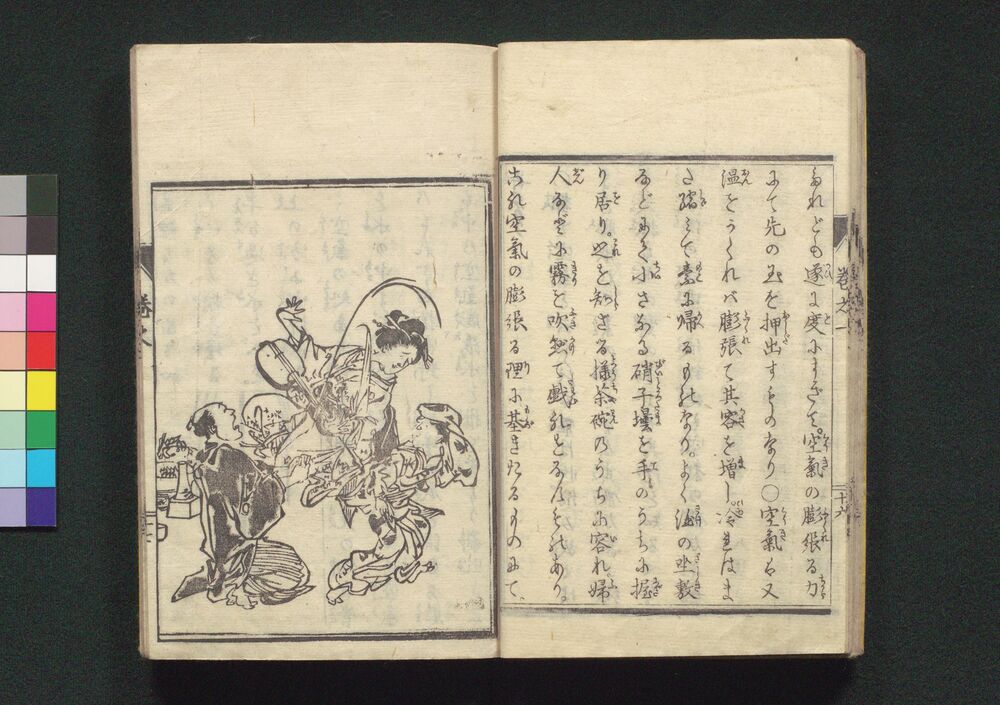 されども遂に度にすぎて。空氣の膨張る力
にて先の玉を押出すものなり〇空氣も又
温をうくれバ膨張て其容を増し。冷れはま
た縮て素に帰るものなり。よく酒の坐敷
などにて小さなる硝子壜を手のうちに握
り居り。是を知さる様茶碗のうちに容れ婦
人などに霧を吹かけて戯れをなすものあり。
これ空氣の膨張る理に基きたるものにて、
巻之一
十六